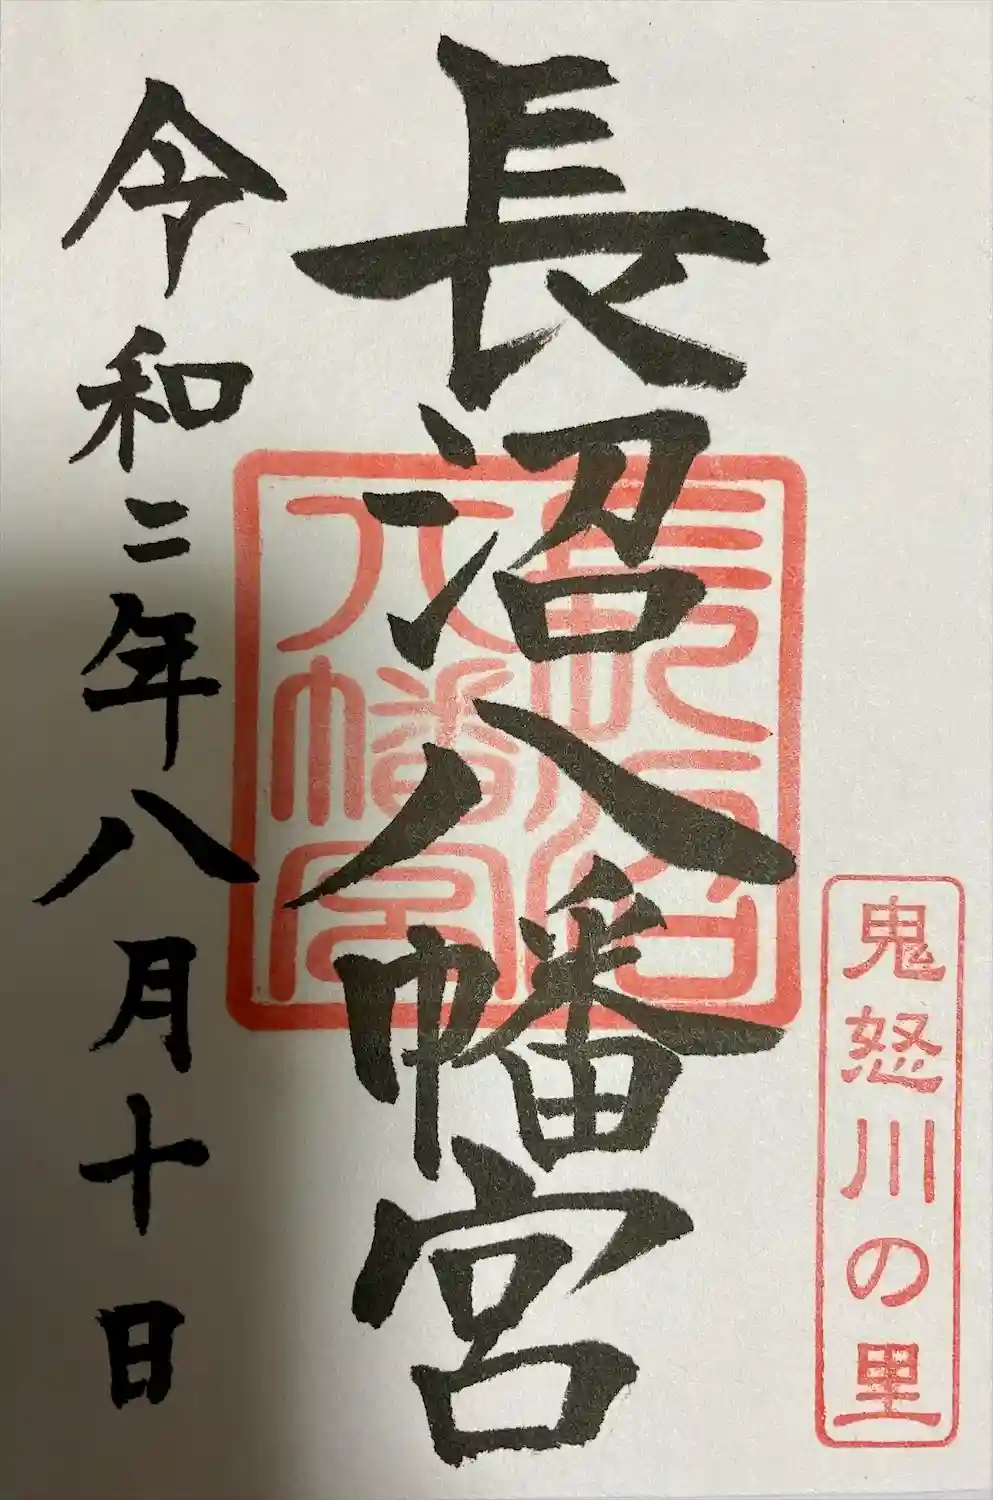 鬼怒川の里
長沼八幡宮
長沼
八幡宮
令和二年八月十日